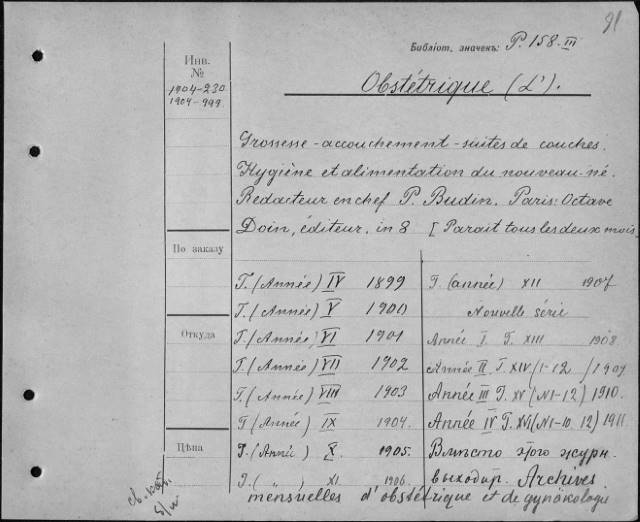 91
Библіот. значекъ: P. 158. III
Инв.
№
1904-230
1904-999.
Obstétrique (L').
Grossesse - accouchement - suites de couches.
Hygiène et alimentation du nouveau-né.
Redacteur en chef P. Budin. Paris: Octave
Doin, éditeur. in 8 [Parait tous les deux mois.
По заказу
T. (Année) IV 1899
T. (Année) V 1900
Откуда
T. (Année) VI 1901
T. (Année) VII 1902
T. (Année) VIII 1903
T. (Année) IX 1904.
Цѣна
T. (Année) X. 1905.
T. ( " ) XI 1906.
T. (année) XII 1907
Nouvelle série
Année I. T. XIII 1908
Année II T. XIV (1-12) 1909
Année III T. XV (N1-12) 1910.
Année IV T. XVI (N1-10 12) 1911
Вмѣсто этого журн.
выходит. Archives
mensuelles d'obstétrique et de gynäkologie